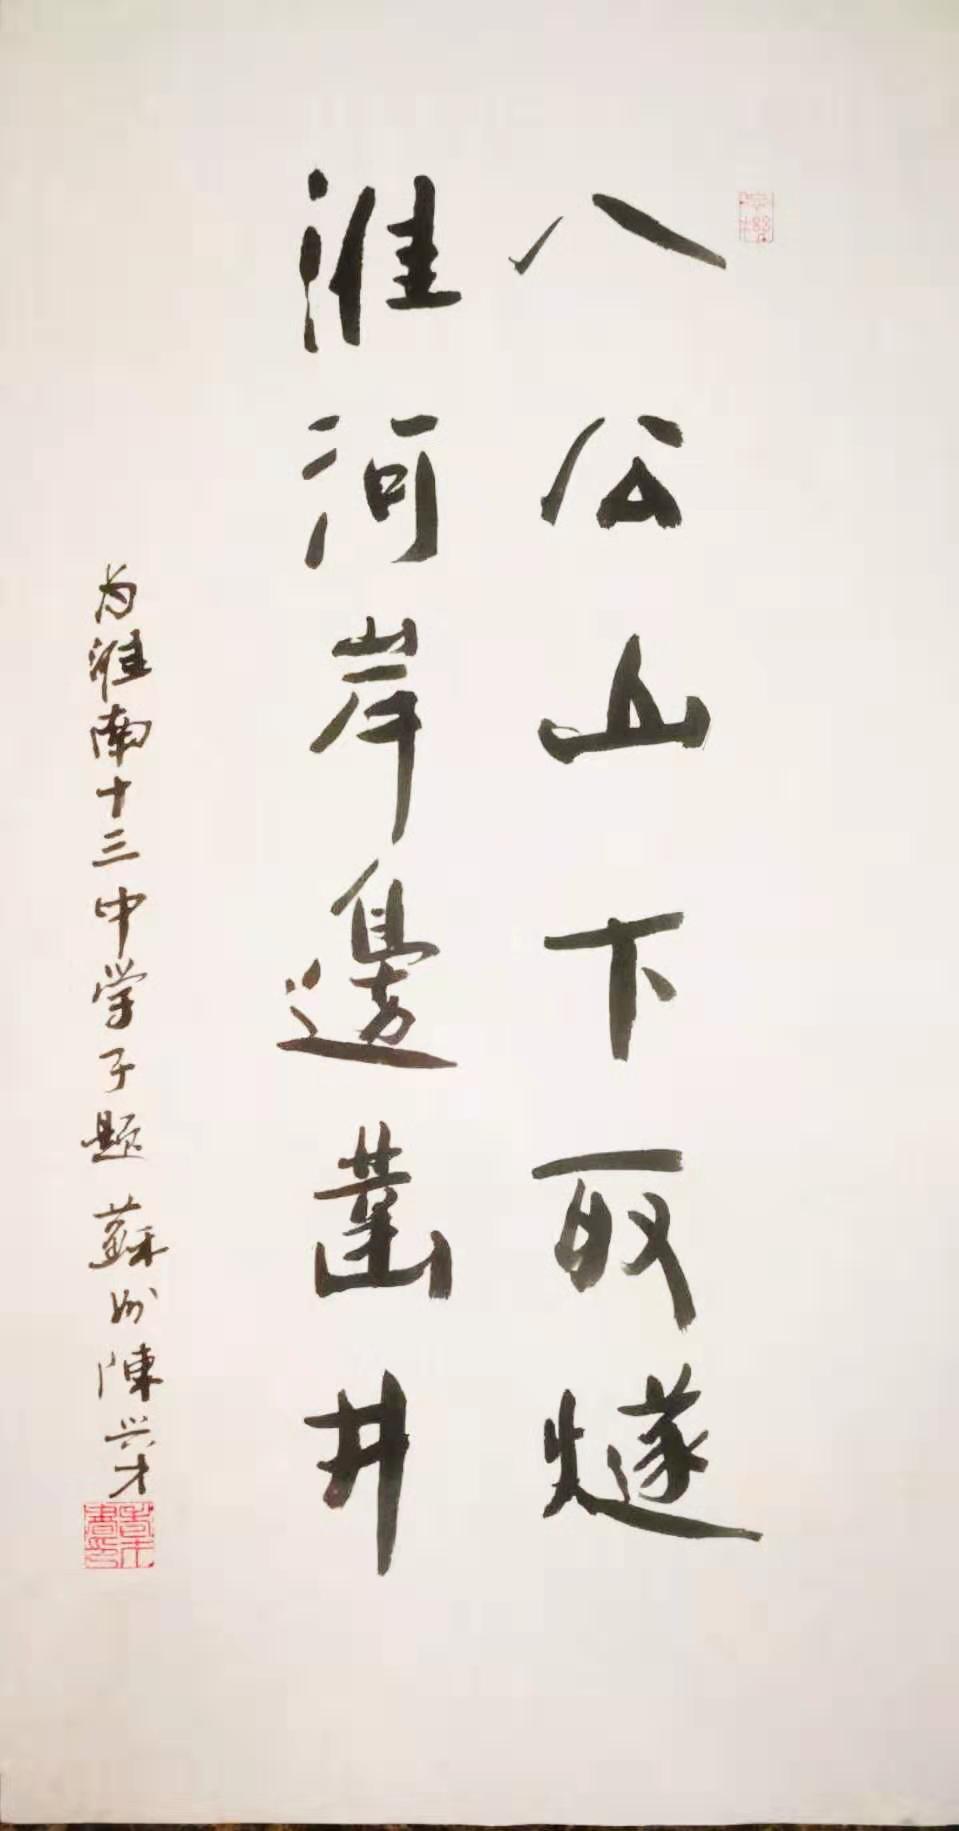 八公山下取燧
淮河岸邊凿井
为淮南十三中学子题 蘇州陳兴才